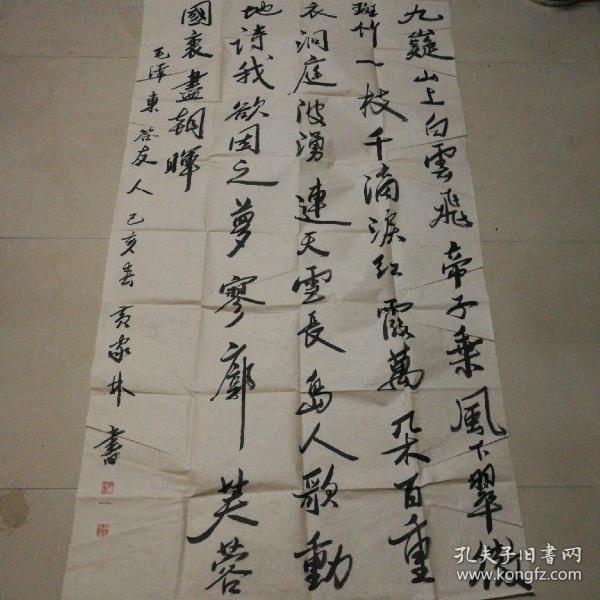 九嶷山上白雲飛帝子乘風下翠微
斑竹一枝千滴淚紅霞萬朵百重
衣洞庭波湧連天雪長島人歌動
地詩我欲因之夢寥廓芙蓉
國裏盡朝暉
毛澤東答友人己亥春黄家林書
孔夫子旧書网
www.kongfz.com